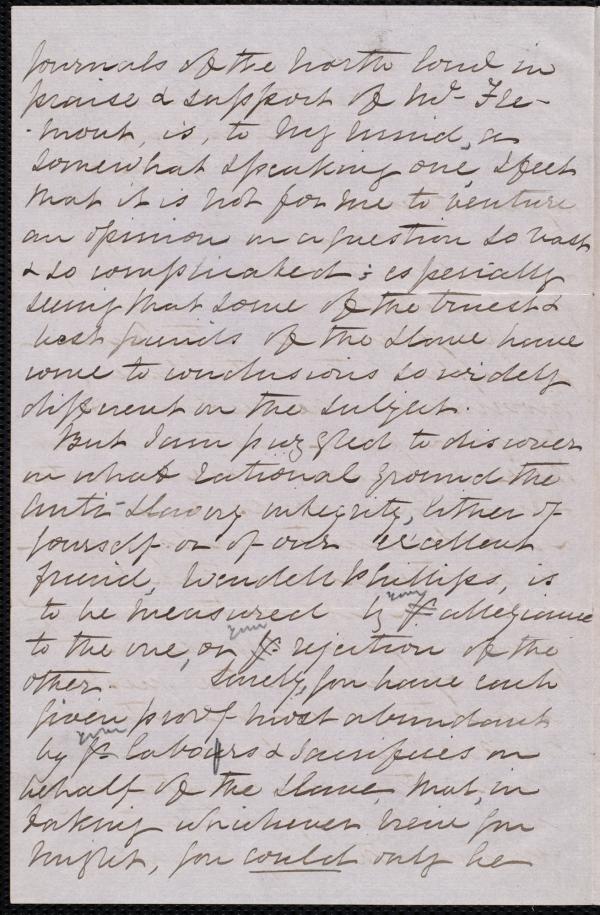 journals of the North loud in
praise & support of Mr. Fre-
-mont, is, to my mind, a
somewhat speaking one, I feel
that it is not for me to venture
an opinion on a question so vast
& so complicated; especially
seeing that some of the truest &
best friends of the slave have
come to conclusions so widely
different on the subject.
But I am puzzled to discover
on what rational ground the
Anti-Slavery integrity, either of
yourself or of our excellent
friend, Wendell Phillips, is
to be measured by your allegiance
to the one, or your rejection of the
other. Surely, you have each
given proof most abundant
by your labours & sacrifices on
behalf of the slave, that, in
taking whichever view you
might, you could only be